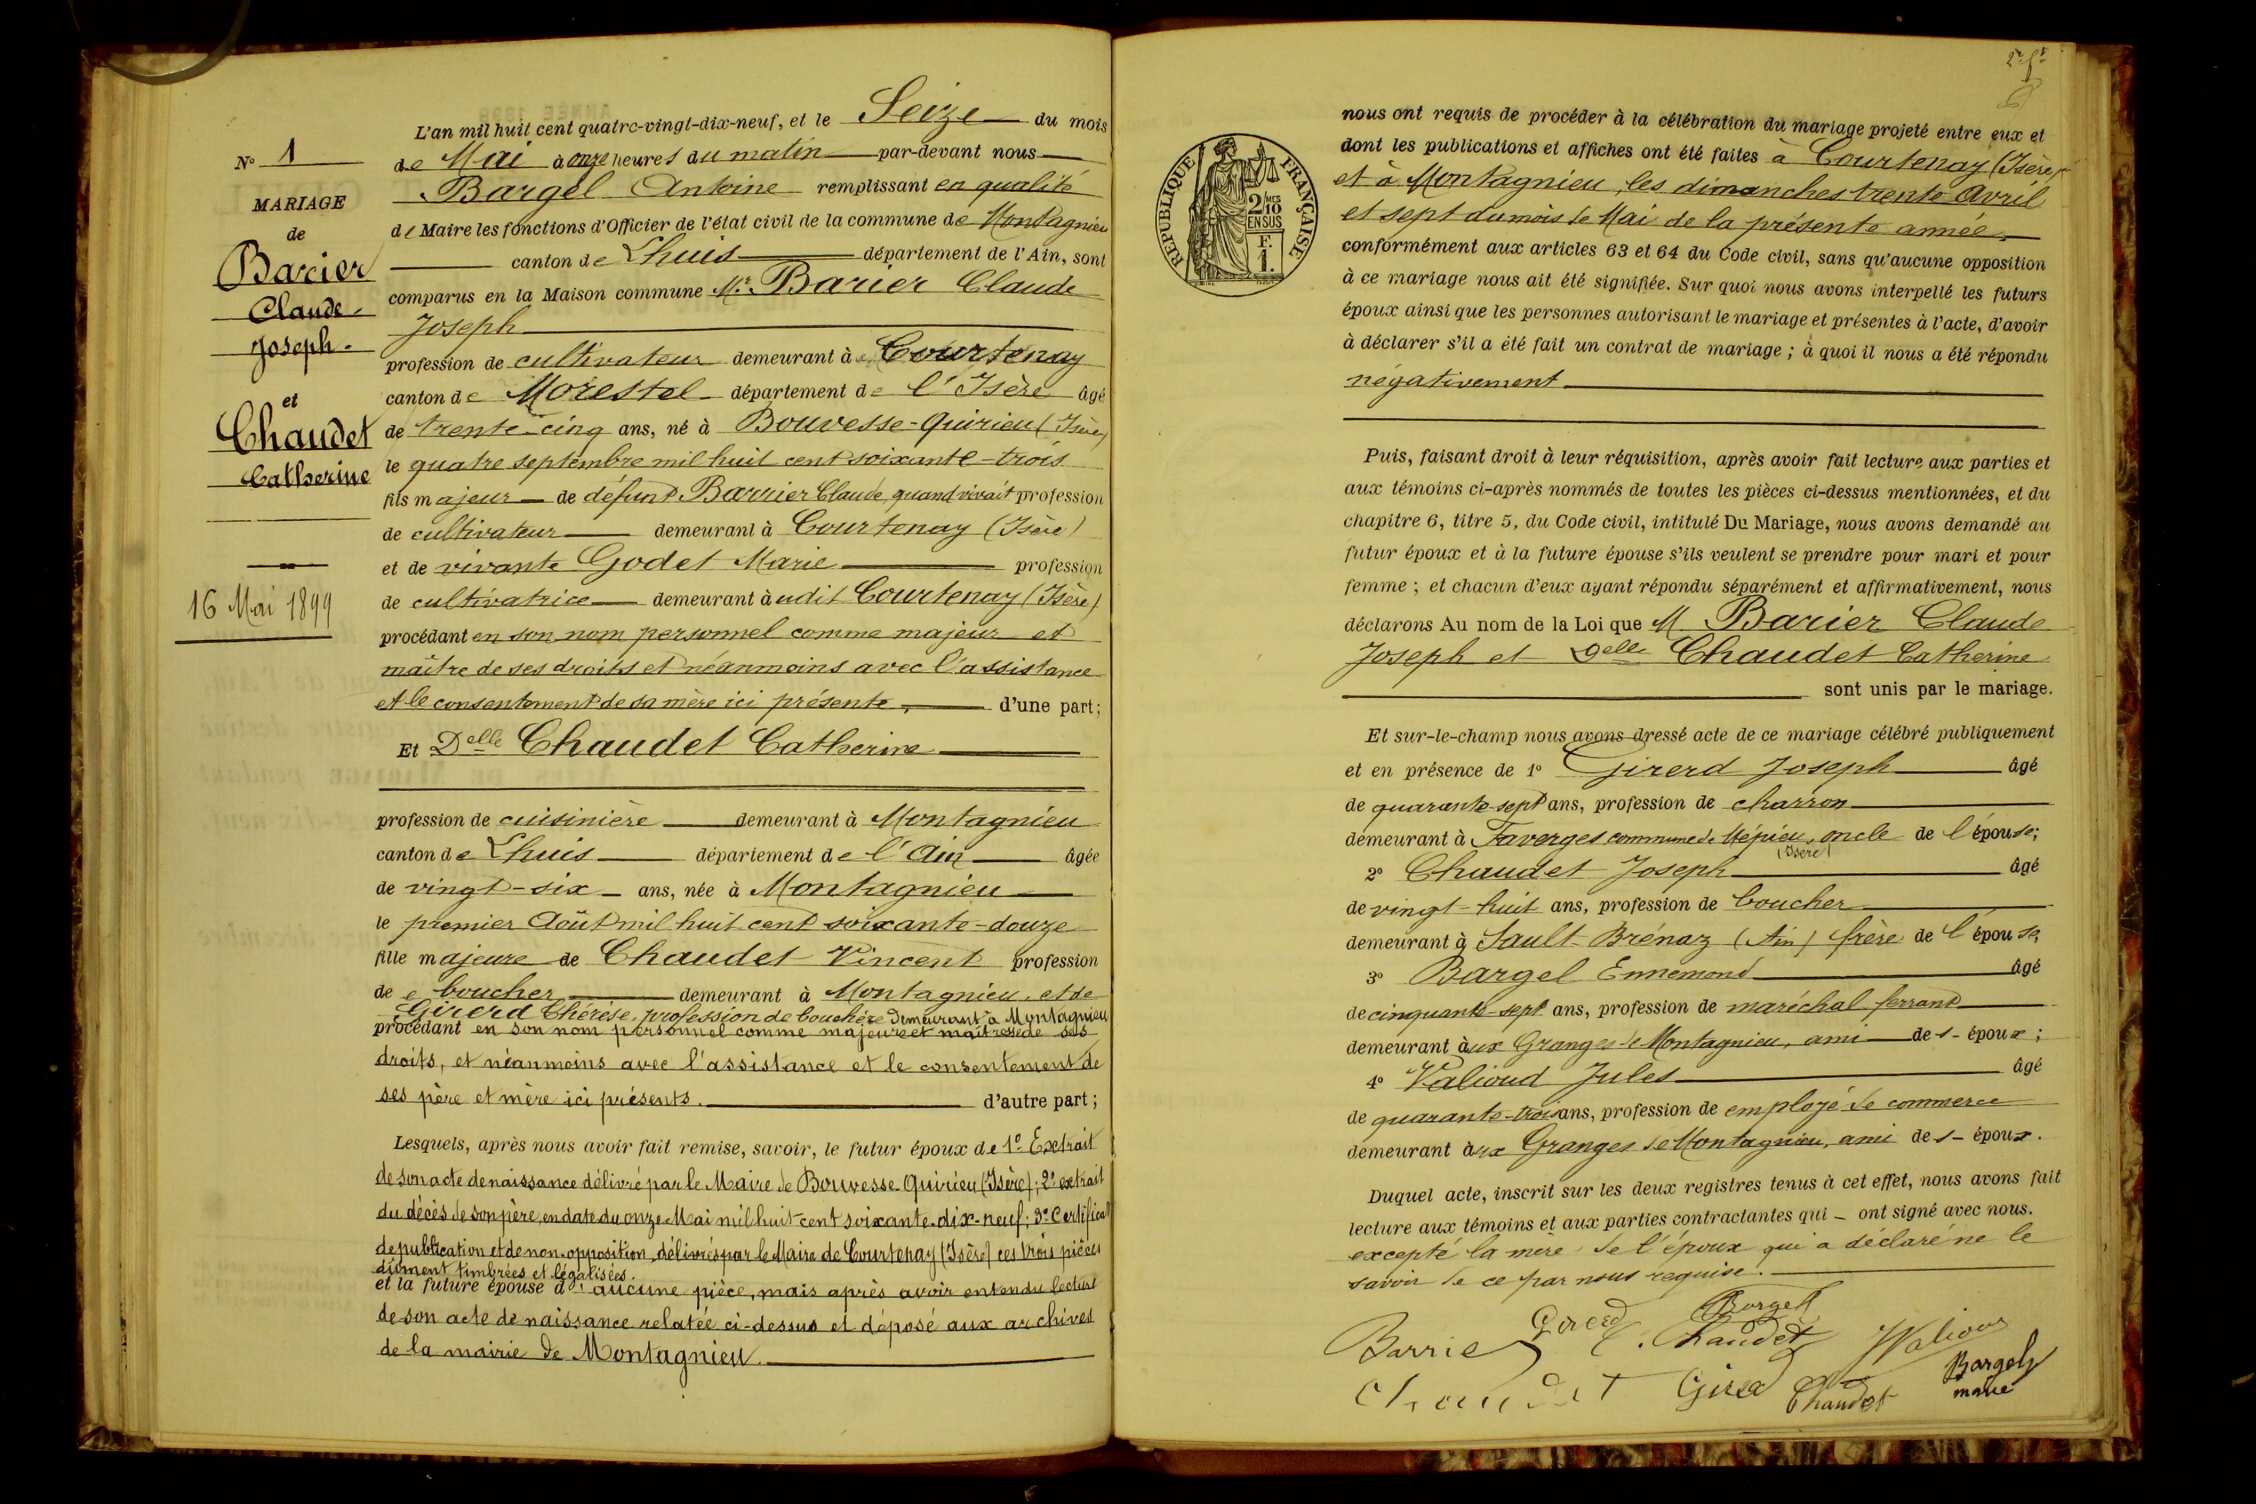 N° 1
MARIAGE
de
Barier
Claude
Joseph
et
Chaudet
Catherine
16 Mai 1899
L'an mil huit cent quatre-vingt-dix-neuf, et le Seize du mois
de Mai à onze heures du matin par-devant nous
Bargel Antoine remplissant en qualité
de Maire les fonctions d'Officier de l'état civil de la commune de Montagnieu
canton de Lhuis département de l'Ain, sont
comparus en la Maison commune Mr. Barier Claude
Joseph
profession de cultivateur demeurant à Courtenay
canton de Morestel département de l'Isère âgé
de trente-cinq ans, né à Bouvesse-Quirieu (Isère)
le quatre septembre mil huit cent soixante-trois
fils majeur de défunt Barrier Claude, quand vivait profession
de cultivateur demeurant à Courtenay (Isère)
et de vivante Godet Marie profession
de cultivatrice demeurant à udit Courtenay (Isère)
procédant en son nom personnel comme majeur et
maître de ses droits et néanmoins avec l'assistance
et le consentement de sa mère ici présente, d'une part;
Et Delle Chaudet Catherine
profession de cuisinière demeurant à Montagnieu
canton de Lhuis département de l'Ain âgée
de vingt-six ans, née à Montagnieu
le premier Août mil huit cent soixante-douze
fille majeure de Chaudet Vincent profession
de boucher demeurant à Montagnieu, et de
Girerd Thérèse, profession de bouchère demeurant à Montagnieu
procédant en son nom personnel comme majeure et maîtresse de ses
droits, et néanmoins avec l'assistance et le consentement de
ses père et mère ici présents. d'autre part;
Lesquels, après nous avoir fait remise, savoir, le futur époux de 1° Extrait
de son acte de naissance délivré par le Maire de Bouvesse-Quirieu (Isère); 2° extrait
du décès de son père, en date du onze Mai mil huit-cent soixante-dix-neuf; 3° Certificat
de publication et de non-opposition, délivrés par le Maire de Courtenay (Isère) ces trois pièces
dûment timbrées et légalisées.
et la future épouse d' aucune pièce, mais après avoir entendu lecture
de son acte de naissance relatée ci-dessus et déposé aux archives
de la mairie de Montagnieu.
2e ft
REPUBLIQUE FRANÇAISE
2/10 MES
EN SUS
F.
1.
nous ont requis de procéder à la célébration du mariage projeté entre eux et
dont les publications et affiches ont été faites à Courtenay (Isère)
et à Montagnieu, les dimanches trente Avril
et sept du mois de Mai de la présente année,
conformément aux articles 63 et 64 du Code civil, sans qu'aucune opposition
à ce mariage nous ait été signifiée. Sur quoi nous avons interpellé les futurs
époux ainsi que les personnes autorisant le mariage et présentes à l'acte, d'avoir
à déclarer s'il a été fait un contrat de mariage; à quoi il nous a été répondu
négativement
Puis, faisant droit à leur réquisition, après avoir fait lecture aux parties et
aux témoins ci-après nommés de toutes les pièces ci-dessus mentionnées, et du
chapitre 6, titre 5, du Code civil, intitulé Du Mariage, nous avons demandé au
futur époux et à la future épouse s'ils veulent se prendre pour mari et pour
femme; et chacun d'eux ayant répondu séparément et affirmativement, nous
déclarons Au nom de la Loi que M Barier Claude
Joseph et Delle Chaudet Catherine
sont unis par le mariage.
Et sur-le-champ nous avons dressé acte de ce mariage célébré publiquement
et en présence de 1° Girerd Joseph âgé
de quarante-sept ans, profession de charron
demeurant à Faverges commune de Mépieu, oncle de l'épouse;
(Isère)
2° Chaudet Joseph âgé
de vingt-huit ans, profession de boucher
demeurant à Sault-Brénaz (Ain) frère de l'épouse;
3° Bargel Ennemond âgé
de cinquante-sept ans, profession de maréchal ferrant
demeurant aux Granges de Montagnieu, ami des époux;
4° Valioud Jules âgé
de quarante-trois ans, profession de employé de commerce
demeurant aux Granges de Montagnieu, ami des époux.
Duquel acte, inscrit sur les deux registres tenus à cet effet, nous avons fait
lecture aux témoins et aux parties contractantes qui ont signé avec nous.
excepté la mère de l'époux qui a déclaré ne le
savoir de ce par nous requise.
Barrier Girerd C. Chaudet Bargel JValioud
Chaudet Girerd Chaudet Bargel
maire